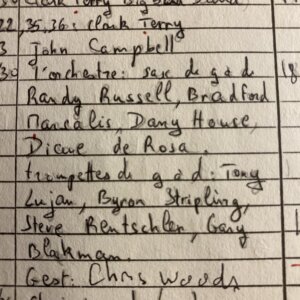 Clark Terry Big Band
22,35,36: Clark Terry
3 John Campbell
30 l'orchestre: sax de g à d
Randy Russell, Bradford
Marsalis, Dany House,
Dicue de Rosa.
trompettes de g à d: Tony
Lujan, Byron Stripling,
Steve Rentschler, Gary
Blakman.
Gest: Chris Woods